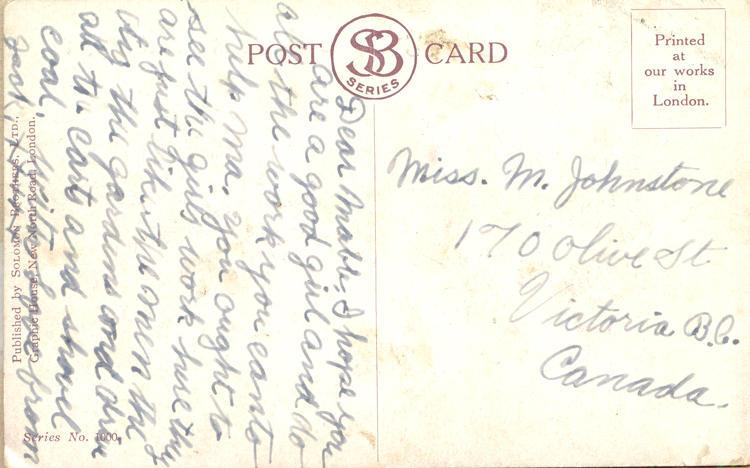 POST CARD
SB
SERIES
Printed
at
our works
in
London.
Dear Mable, I hope you
are a good girl and do
all the work you can to
help Ma. You ought to
see the girls work here they
are just like the men they
dig the gardens and drive
all the carts and shovel
coal, from
Jack,
Miss. M. Johnstone
170 Olive St
Victoria B.C.
Canada.
Published by SOLOMON BROTHERS, LTD.,
Graphic House, New North Road, London.
Series No. 1000.